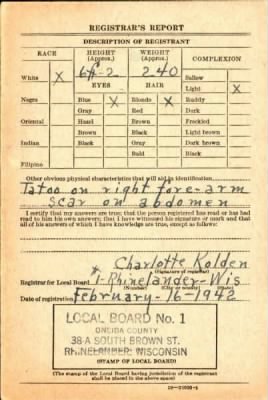 REGISTRAR'S REPORT
DESCRIPTION OF REGISTRANT
RACE HEIGHT (Approx.) WEIGHT (Approx.) COMPLEXION
6ft-2 240
White X Sallow
EYES HAIR Light X
Negro Blue X Blonde X Ruddy
Gray Red Dark
Oriental Hazel Brown Freckled
Brown Black Light brown
Indian Black Gray Dark brown
Bald Black
Filipino
Other obvious physical characteristics that will aid in identification
Tatoo on right fore-arm
scar on abdomen
I certify that my answers are true; that the person registered has read or has had
to him his own answers; that I have witnessed his signature or mark and that
all of his answers of which I have knowledge are true, except as follows:
Charlotte Kolden
(Signature of registrar)
Registrar for Local Board 1-Rhinelander-Wis
(Number) (City or county) (State)
Date of registration February-16-1942
LOCAL BOARD No. 1
ONEIDA COUNTY
38-A SOUTH BROWN ST.
RHINELANDER, WISCONSIN
(STAMP OF LOCAL BOARD)
(The stamp of the Local Board having jurisdiction of the registrant
shall be placed in the above space)